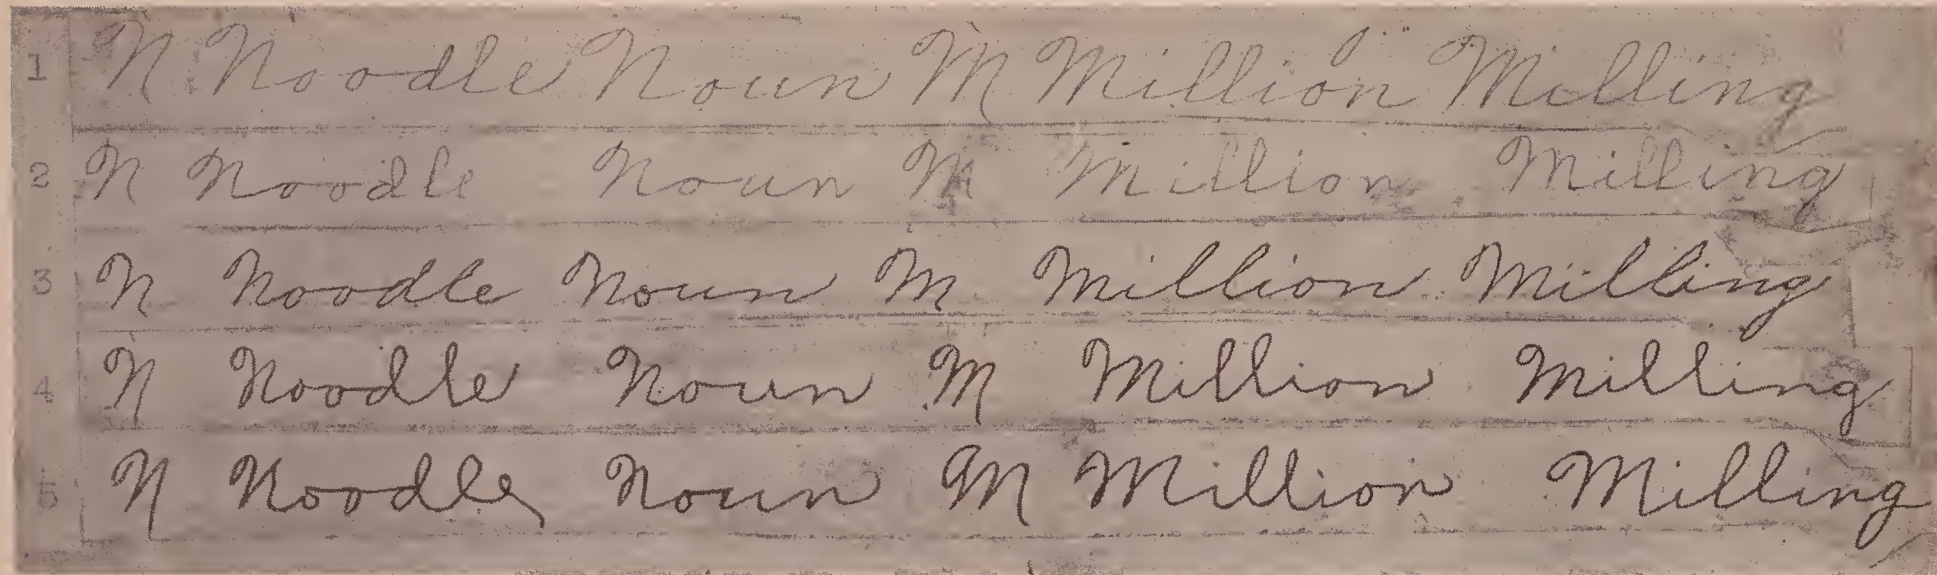 1 N Noodle Noun M Million Milling
2 N Noodle Noun M Million Milling
3 N Noodle Noun M Million Milling
4 N Noodle Noun M Million Milling
5 N Noodle Noun M Million Milling